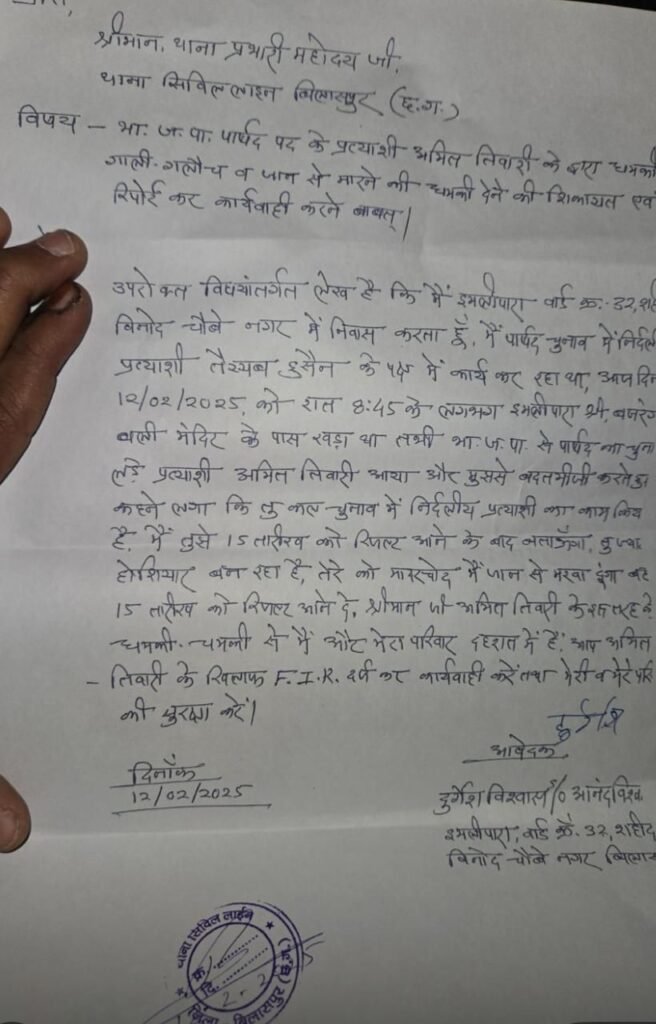 श्रीमान, थाना प्रभारी महोदय जी,
थाना सिविल लाइन बिलासपुर (छ.ग.)
विषय – भा. ज. पा. पार्षद पद के प्रत्याशी अमित तिवारी के द्वारा धमकी
गाली-गलौच व जान से मारने की धमकी देने की शिकायत एवं
रिपोर्ट कर कार्यवाही करने बाबत्|
उपरोक्त विषयांतर्गत लेख है कि मैं इमलीपारा वार्ड क्र.-32,
बिनोद चौबे नगर में निवास करता हूँ, मैं पार्षद चुनाव में
प्रत्याशी तैय्यब हुसैन के पक्ष में कार्य कर रहा था, आज
12/02/2025, को रात 8:45 के लगभग इमलीपारा श्री बजरंग
बली मंदिर के पास खड़ा था तभी भा.ज.पा. से पार्षद का
लड़े प्रत्याशी अमित तिवारी आया और मुझसे बदतमीजी करते
कहने लगा कि तु कल चुनाव में निर्दलीय प्रत्याशी का काम किय
है, मैं तुझे 15 तारीख को रिजल्ट आने के बाद बताऊँगा, तु
होशियार बन रहा है, तेरे को मादरचोद मैं जान से मरवा दूंगा बस
15 तारीख को रिजल्ट आने दे, श्रीमान जी अमित तिवारी के इस तरह के
धमकी-चमकी से मैं और मेरा परिवार दहशत में हैं, आप अमित
– तिवारी के खिलाफ F.I.R. दर्ज कर कार्यवाही करें तथा मेरी व मेरे परि
की सुरक्षा करें|
आवेदक
दिनाँक
12/02/2025
दुर्गेश विश्वास S/O आनंद
इमलीपारा, वार्ड क्रं. 32, शहीद
बिनोद चौबे नगर
थाना सिविल लाईन
क्र.
दि.
जिला बिलासपुर (छ.ग.)